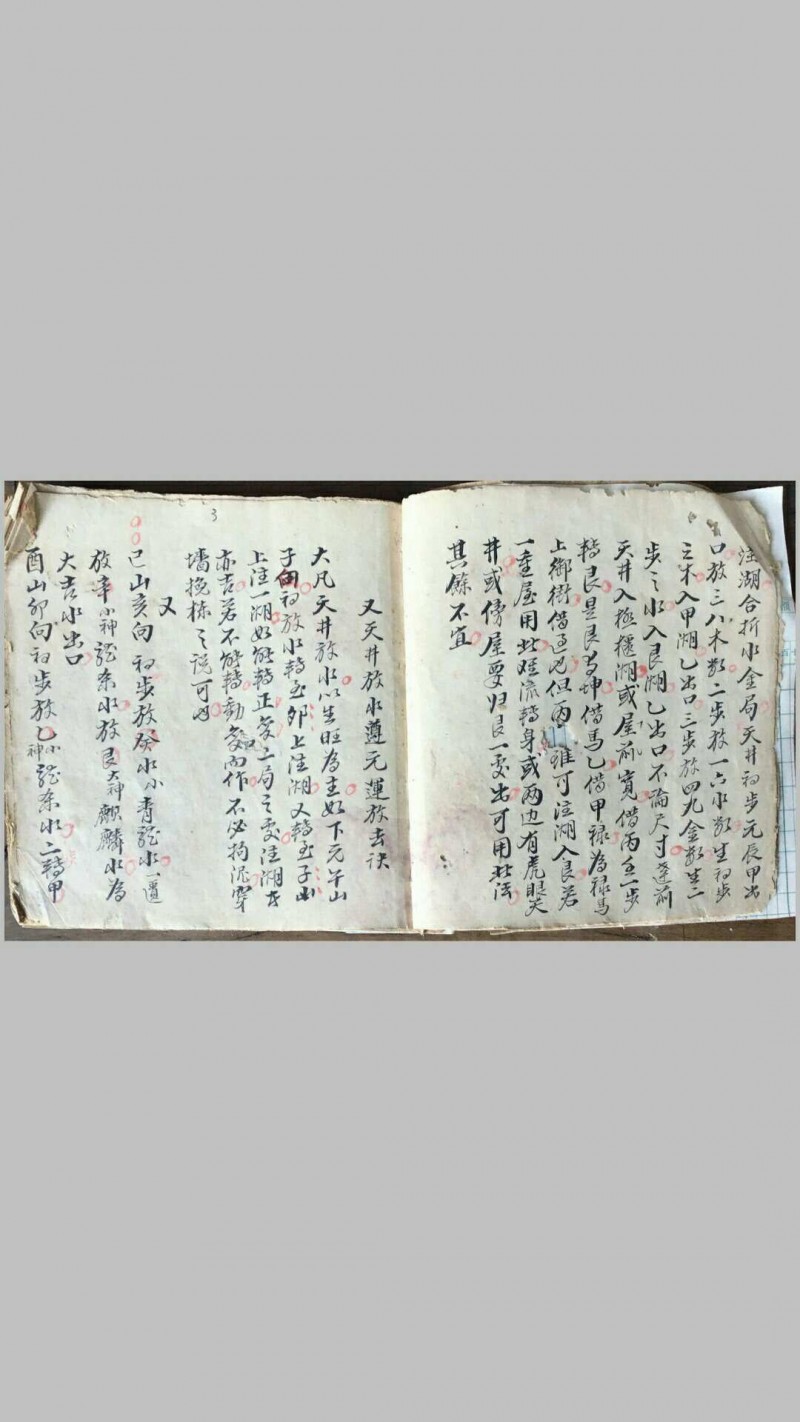 注湖合折水金局天井初步元辰甲出
口放三八木数二步放一六水数生初步
之木入甲湖乙出口三步放四九金数生二
步之水入艮湖乙出口不論尺寸逢前
天井入極穩湖或屋前寬借丙壬一步
轉艮是艮為坤借馬乙借甲禄為禄馬
上御街借過他但丙雖可注湖入艮若
一重屋用此难流轉身或两边有虎眼天
井或傍屋要归艮一處出可用此法
其餘不宜
3
又天井放水遵元運放去訣
大凡天井放水以生旺為主如下元午山
子向初放水轉至卯上注湖又轉至子山
上注一湖如能轉正屋二局之處注湖者
亦吉若不能轉動屋而作不必拘泥穿
墙挽棟之說可也
又
巳山亥向初步放癸水小青龍水二進
放辛小神龍朶水放艮大神麒麟水為
大吉水出口
酉山卯向初步放乙小神龍朶水二轉甲